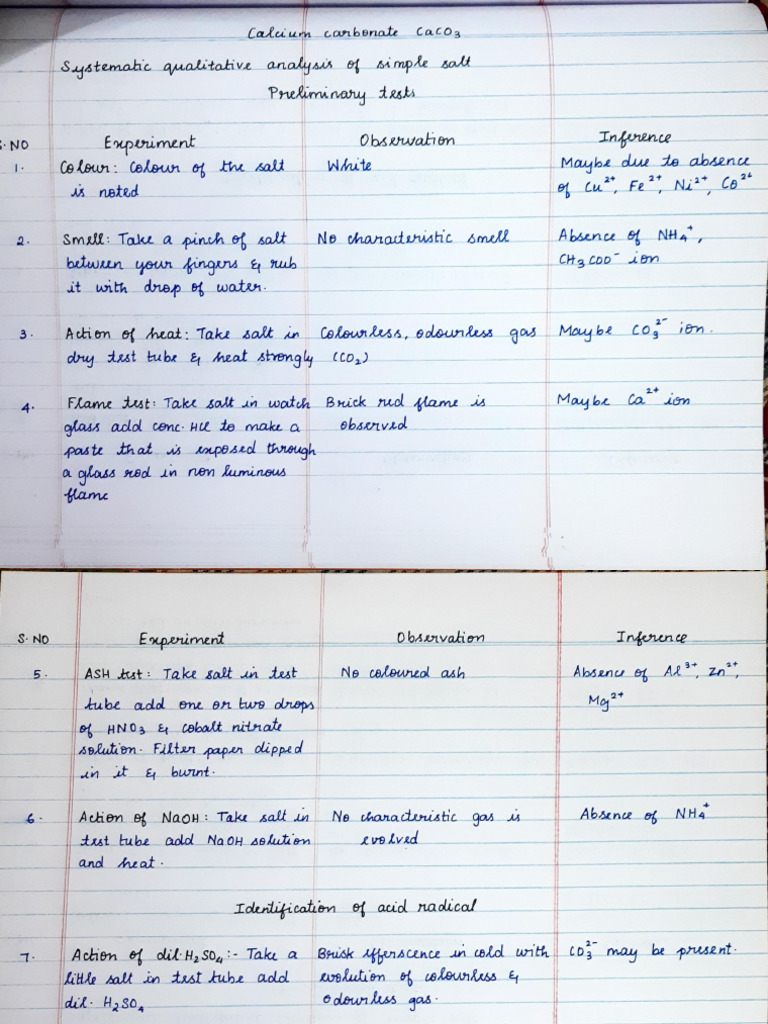 Calcium carbonate CaCO₃
Systematic qualitative analysis of simple salt
Preliminary tests
S.NO Experiment Observation Inference
1. Colour: Colour of the salt White Maybe due to absence
is noted of Cu²⁺, Fe²⁺, Ni²⁺, Co²⁺
2. Smell: Take a pinch of salt No characteristic smell Absence of NH₄⁺,
between your fingers & rub CH₃COO⁻ ion
it with drop of water.
3. Action of heat: Take salt in Colourless, odourless gas Maybe CO₃²⁻ ion.
dry test tube & heat strongly (CO₂)
4. Flame test: Take salt in watch Brick red flame is Maybe Ca²⁺ ion
glass add conc. HCl to make a observed
paste that is exposed through
a glass rod in non luminous
flame
S.NO Experiment Observation Inference
5. ASH test: Take salt in test No coloured ash Absence of Al³⁺, Zn²⁺,
tube add one or two drops Mg²⁺
of HNO₃ & cobalt nitrate
solution. Filter paper dipped
in it & burnt.
6. Action of NaOH: Take salt in No characteristic gas is Absence of NH₄⁺
test tube add NaOH solution evolved
and heat.
Identification of acid radical
7. Action of dil. H₂SO₄:- Take a Brisk efferscence in cold with CO₃²⁻ may be present.
little salt in test tube add evolution of colourless &
dil. H₂SO₄ odourless gas.